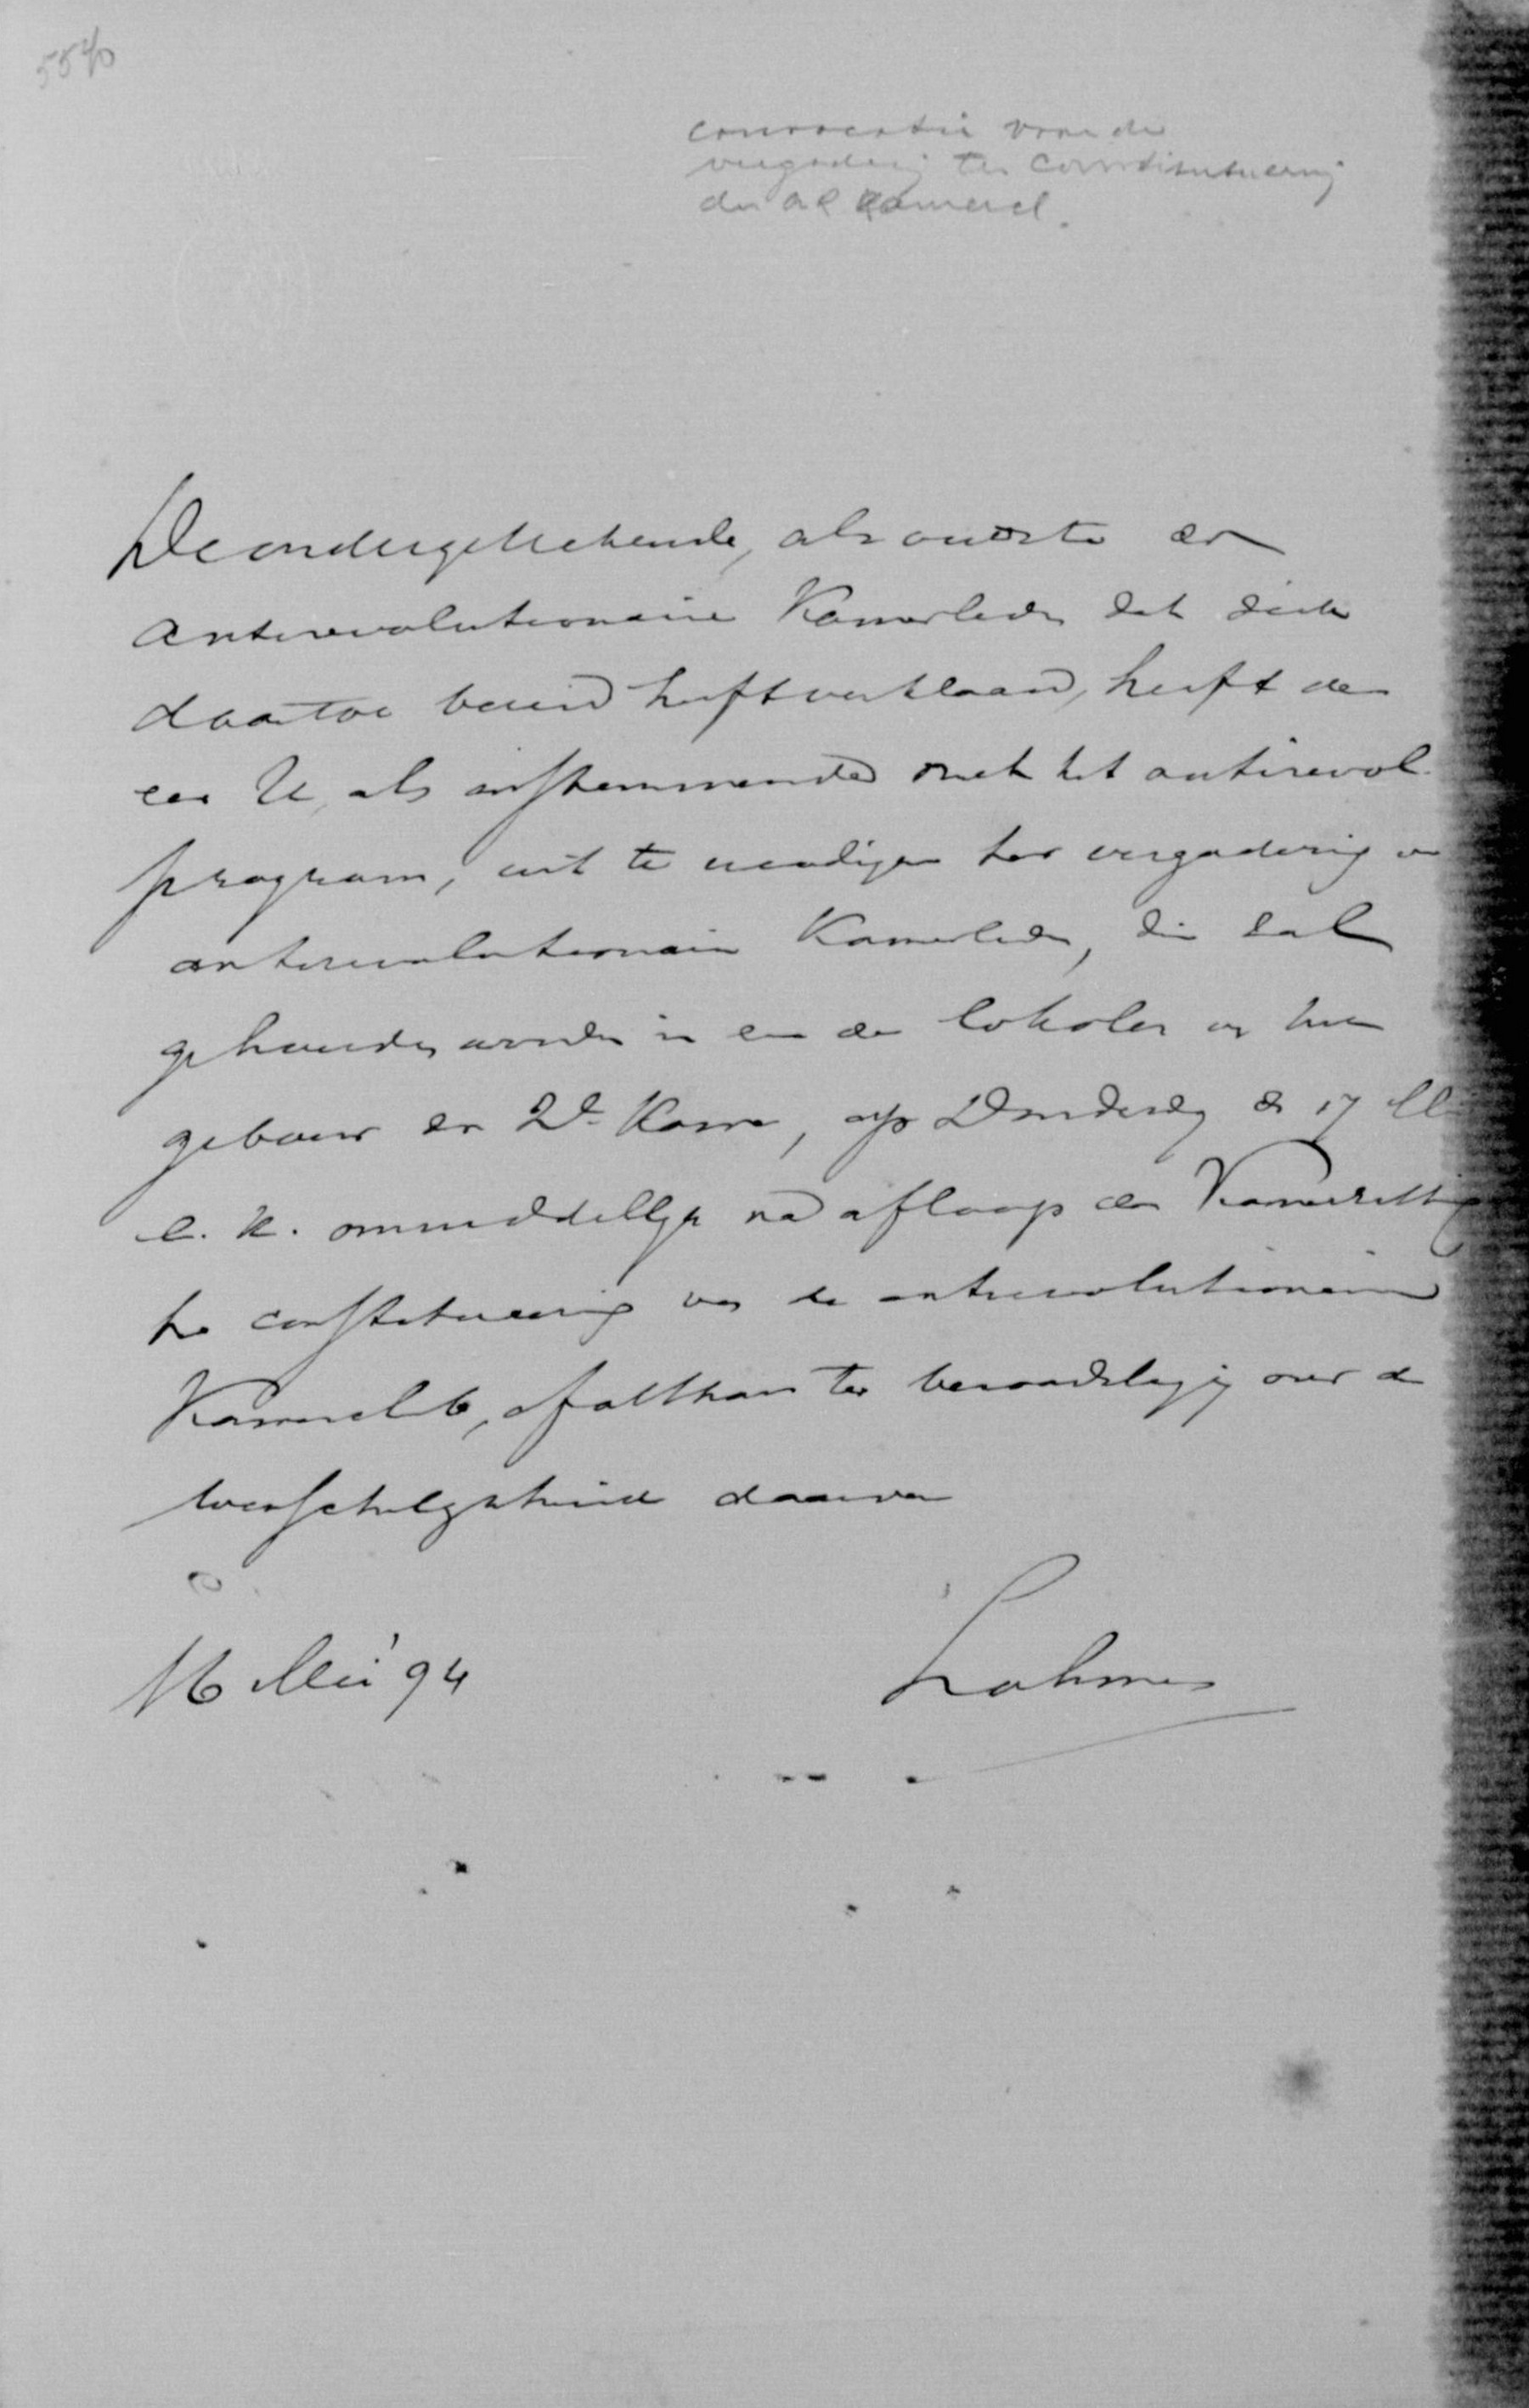 5540
convocatie voor de
vergadering ter constitueering
der AR Kamercl.
De ondergeteekende, als oudste der
antirevolutionaire Kamerleden dat zich
daartoe bereid heeft verklaard, heeft de
eer U, als instemmende met het antirevol.
program, uit te noodigen ter vergadering van
antirevolutionaire Kamerleden, die zal
gehouden worden in een der lokalen van het
gebouw der 2de Kamer, op Donderdag de 17 Mei
e.k. onmiddellijk na afloop der Kamerzitting
ter constitueering van de antirevolutionaire
Kamerclub, of althans ter beraadslaging over de
wenschelijkheid daarvan
16 Mei '94
Lohman